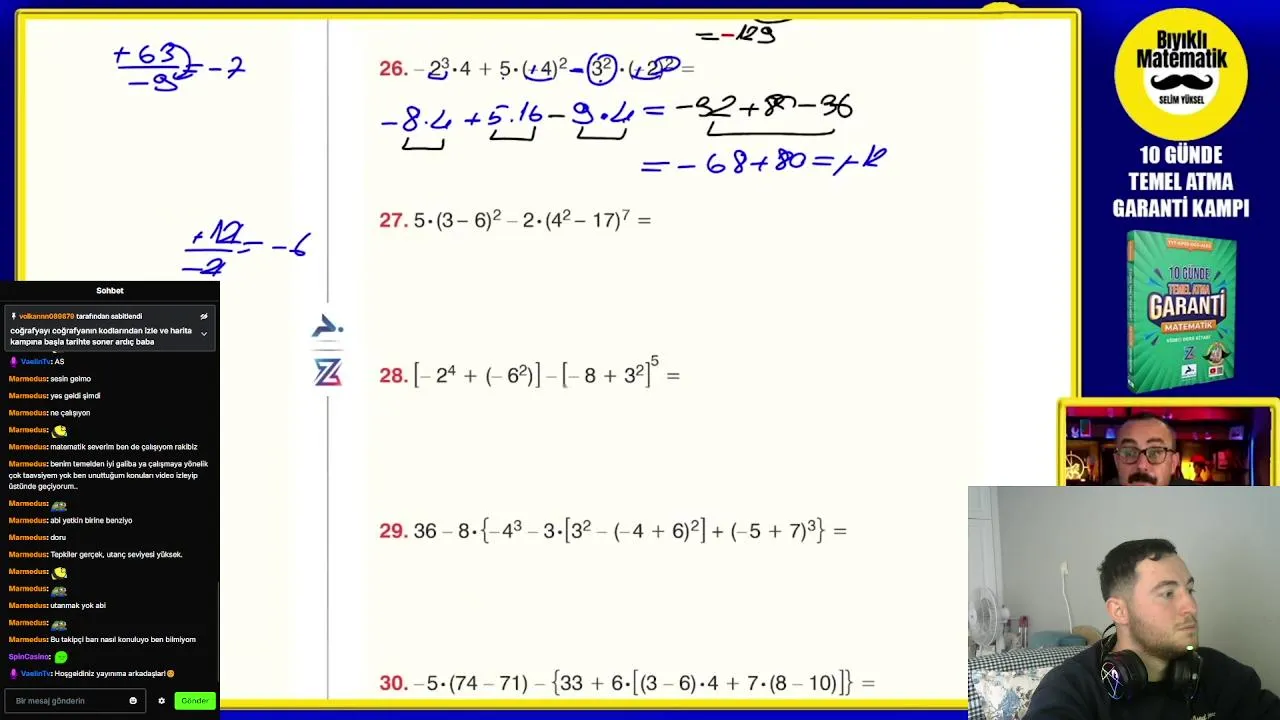 +63
-9
= -7
= -129
26. – 2³·4 + 5·(+4)² – (3²)·(+2)² =
-8.4 +5.16 - 9.4 = -32+80-36
= -68+80=+12
27. 5·(3 – 6)² – 2·(4² – 17)⁷ =
+12
-2
= -6
28. [– 2⁴ + (– 6²)] – [– 8 + 3²]⁵ =
29. 36 – 8·{–4³ – 3·[3² – (–4 + 6)²] + (–5 + 7)³} =
30. –5·(74 – 71) – {33 + 6·[(3 – 6)·4 + 7·(8 – 10)]} =
Bıyıklı
Matematik
SELİM YÜKSEL
10 GÜNDE
TEMEL ATMA
GARANTİ KAMPI
10 GÜNDE
TEMEL ATMA
GARANTİ
MATEMATİK
VİDEO DERS KİTABI
Sohbet
volkannn089879 tarafından sabitlendi
coğrafyayı coğrafyanın kodlarından izle ve harita
kampına başla tarihte soner ardıç baba
VaelinTv: AS
Marmedus: sesin gelmo
Marmedus: yes geldi şimdi
Marmedus: ne çalışıyon
Marmedus:
Marmedus: matematik severim ben de çalışıyom rakibiz
Marmedus: benim temelden iyi galiba ya çalışmaya yönelik
çok taavsiyem yok ben unuttuğum konuları video izleyip
üstünde geçiyorum..
Marmedus:
Marmedus: abi yetkin birine benziyo
Marmedus: doru
Marmedus: Tepkiler gerçek, utanç seviyesi yüksek.
Marmedus:
Marmedus:
Marmedus: utanmak yok abi
Marmedus:
Marmedus: Bu takipçi barı nasıl konuluyo ben bilmiyom
SpinCasino:
VaelinTv: Hoşgeldiniz yayınıma arkadaşlar!
Bir mesaj gönderin
Gönder